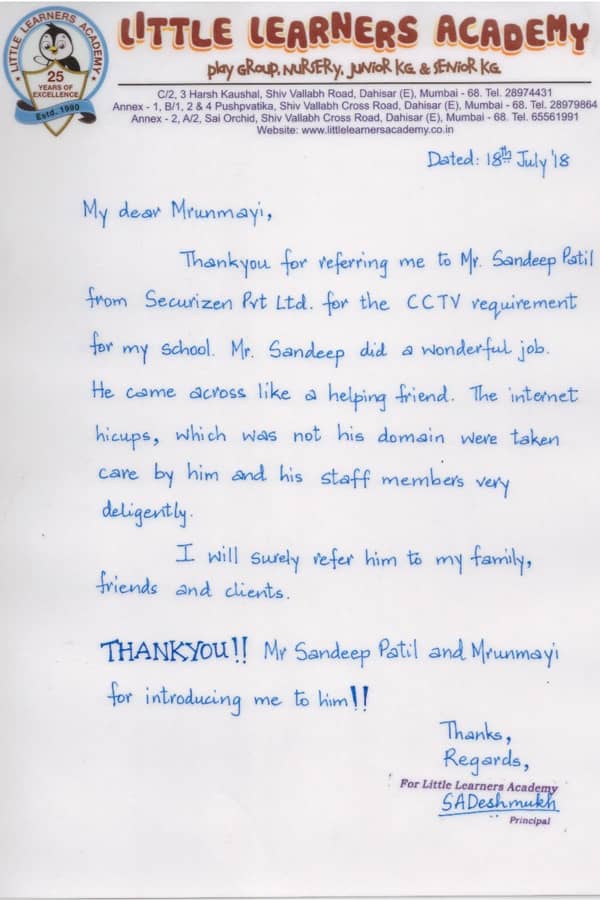 LITTLE LEARNERS ACADEMY
25
YEARS OF
EXCELLENCE
Estd. 1990
LITTLE LEARNERS ACADEMY
PLAY GROUP, NURSERY, JUNIOR KG & SENIOR KG
C/2, 3 Harsh Kaushal, Shiv Vallabh Road, Dahisar (E), Mumbai - 68. Tel. 28974431
Annex - 1, B/1, 2 & 4 Pushpvatika, Shiv Vallabh Cross Road, Dahisar (E), Mumbai - 68. Tel. 28979864
Annex - 2, A/2, Sai Orchid, Shiv Vallabh Cross Road, Dahisar (E), Mumbai - 68. Tel. 65561991
Website: www.littlelearnersacademy.co.in
Dated: 18th July '18
My dear Mrunmayi,
Thankyou for referring me to Mr. Sandeep Patil
from Securizen Pvt Ltd. for the CCTV requirement
for my school. Mr. Sandeep did a wonderful job.
He came across like a helping friend. The internet
hicups, which was not his domain were taken
care by him and his staff members very
deligently.
I will surely refer him to my family,
friends and clients.
THANKYOU!! Mr Sandeep Patil and Mrunmayi
for introducing me to him!!
Thanks,
Regards,
For Little Learners Academy
SADeshmukh
Principal